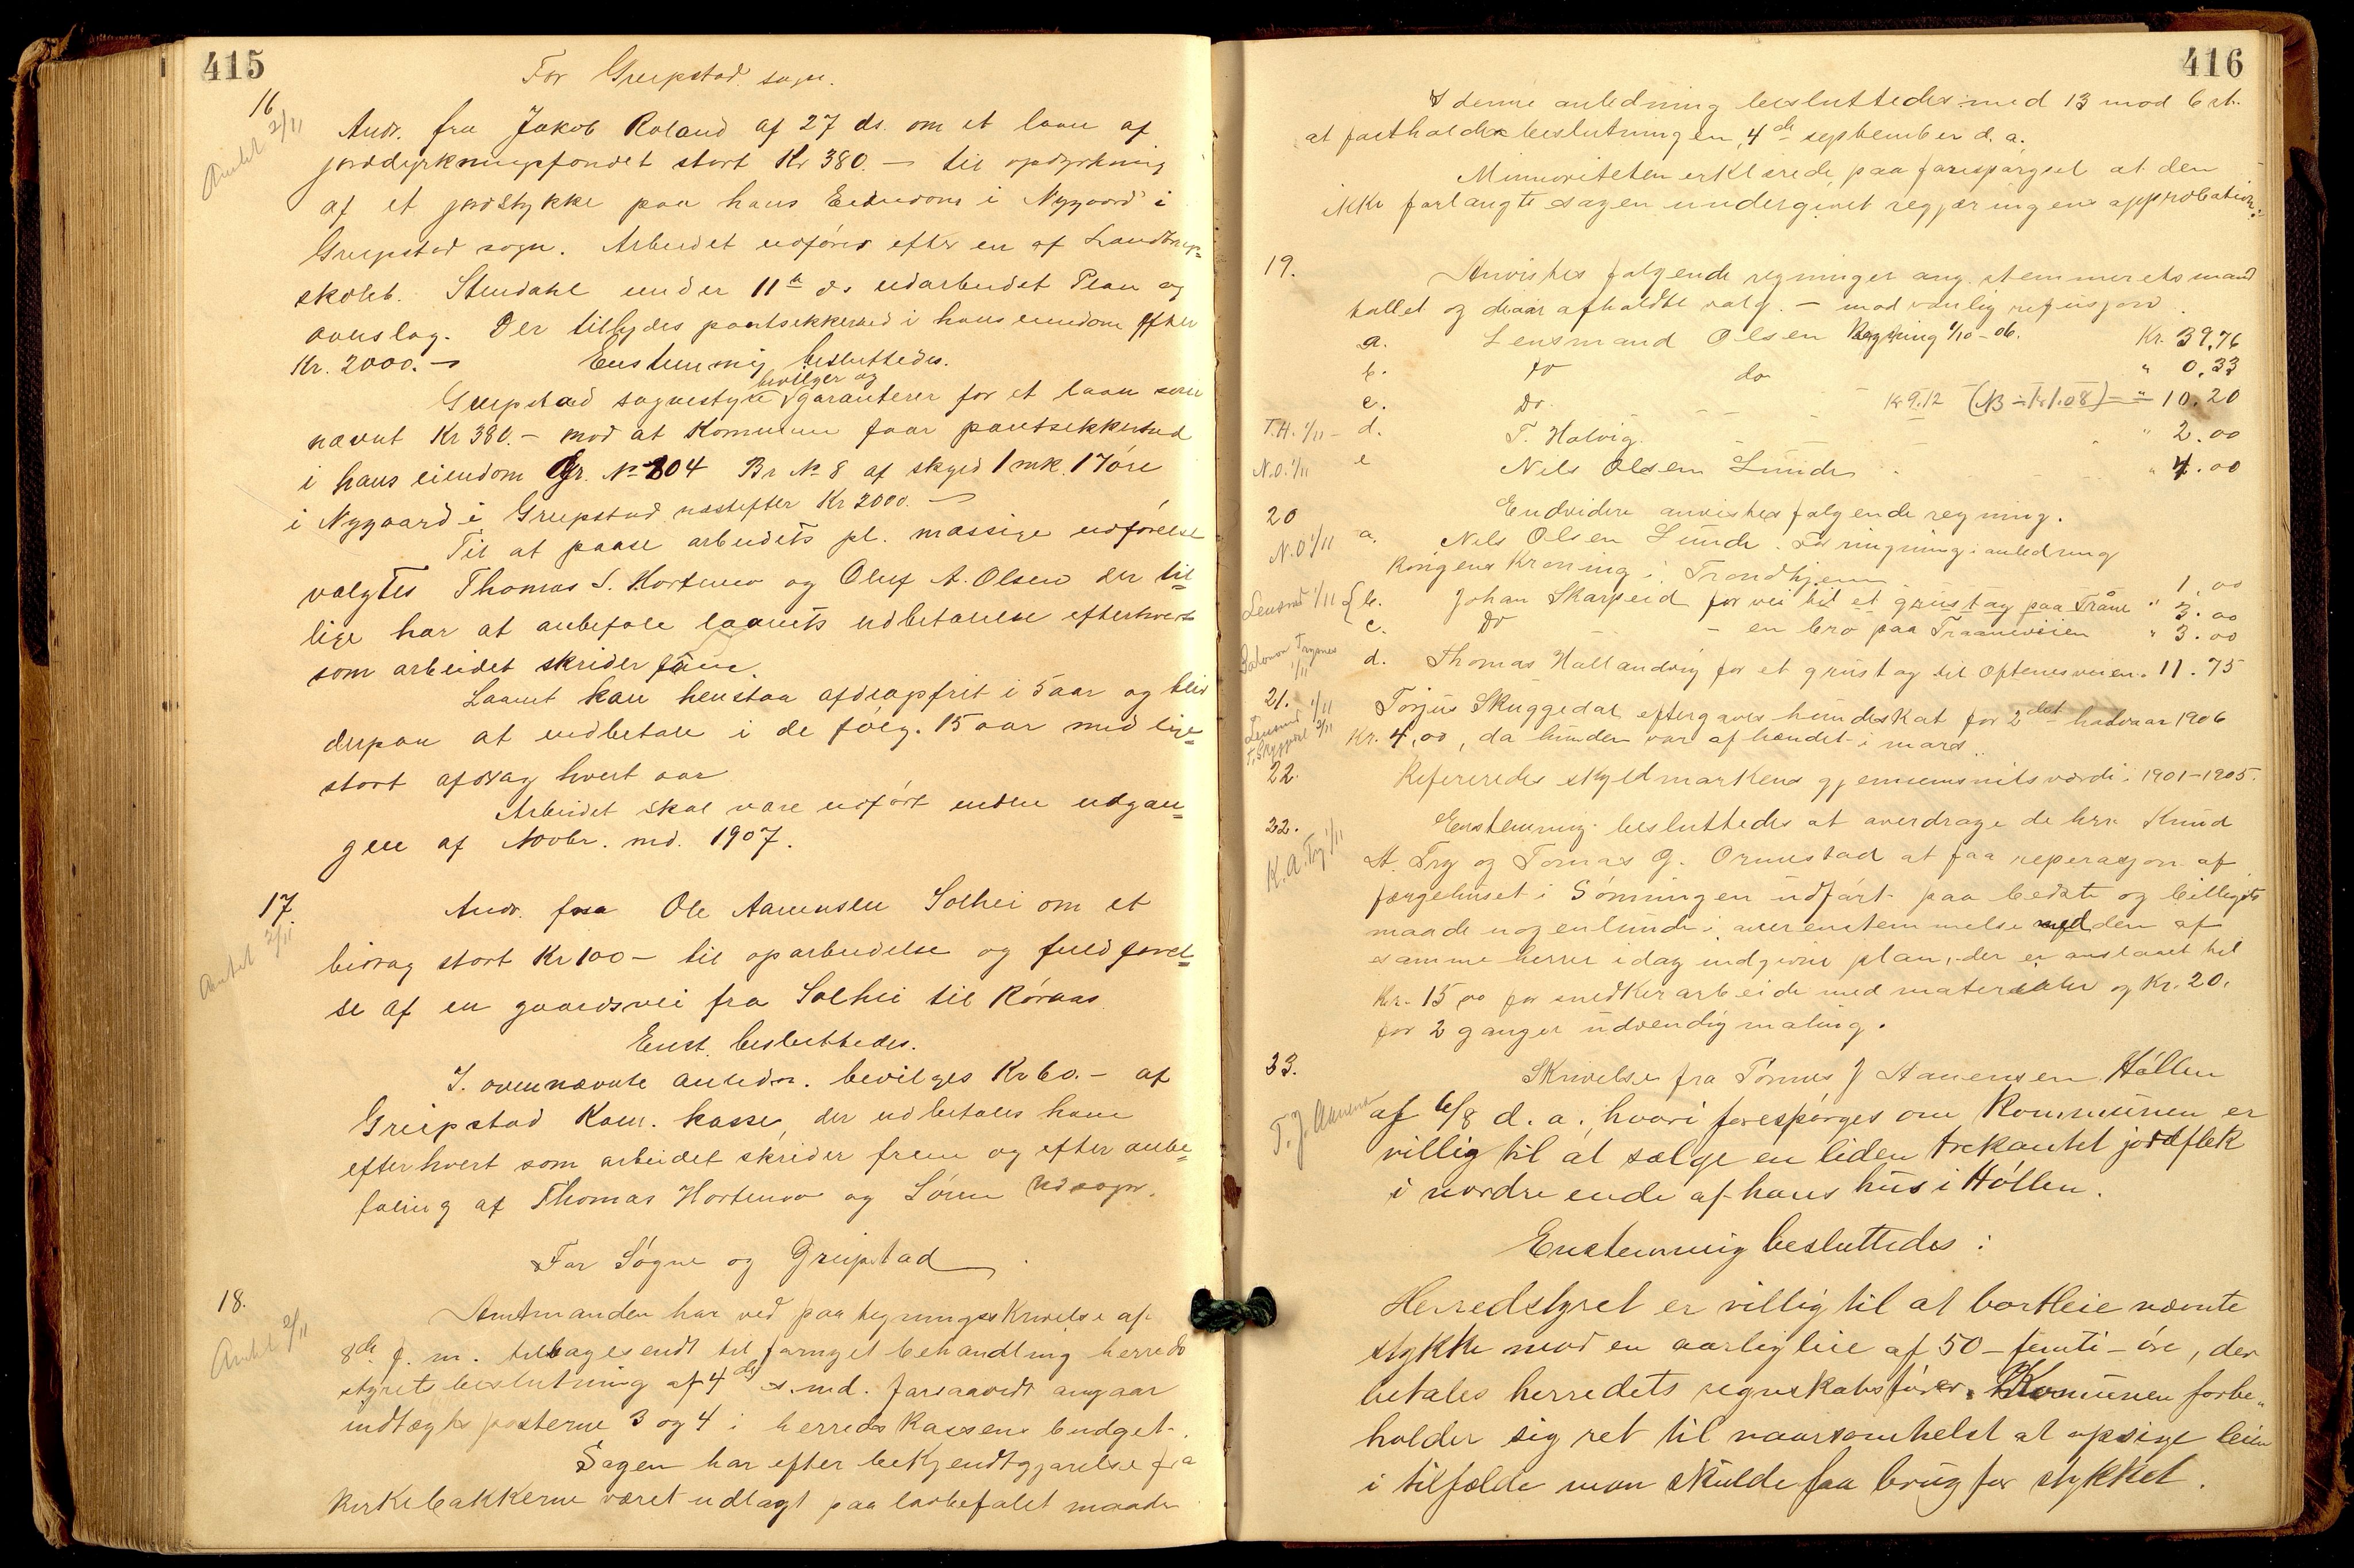 415
For Greipstad sogn.
16
Antat 2/11
Andr. fra Jakob Roland af 27 ds. om et laan af
jorddyrkningsfondet stort Kr 380.- til opdyrkning
af et jordstykke paa hans Eiendom i Nygaard i
Greipstad sogn. Arbeidet udføres efter en af Landbrugs=
skoleb. Stendahl under 11te ds. udarbeidet Plan og
overslag. Der tilbydes pantsikkerhed i hans eiendom efter
Kr. 2000.- Enstemmig besluttedes.
bevilger og
Greipstad sognestyre garanterer for et laan som
nævnt Kr 380.- mod at Kommunen faar pantsikkerhed
i hans eiendom Gr. No 104 Br No 8 af skyld 1 mk. 17 øre
i Nygaard i Greipstad næstefter Kr 2000.-
Til at paase arbeidets pl. mæssige udførelse
valgtes Thomas S. Hortemo og Oluf A. Olsen der til=
lige har at anbefale laanets udbetalelse efterhvert
som arbeidet skrider frem.
Laanet kan henstaa afdragsfrit i 5 aar og bliv
derpaa at indbetale i de følg. 15 aar med lige=
stort afdrag hvert aar
Arbeidet skal være udført inden udgan=
gen af Novbr. md. 1907.
17.
Antat 2/11
Andr. fra Ole Aanensen Solhei om et
bidrag stort Kr 100- til oparbeidelse og fuldførel=
se af en gaardsvei fra Solhei til Røraas
Enst. besluttedes.
I. ovennævnte anledn. bevilges Kr 60.- af
Greipstad Kom. kasse, der udbetales ham
efterhvert som arbeidet skrider frem og efter anbe=
faling af Thomas Hortemo og Søren
For Søgne og Greipstad
18.
Antat 2/11
Amtmanden har ved paategningsskrivelse af
8de f. m. tilbagesendt til fornyet behandling herreds
styrets beslutning af 4de s. md. forsaavidt angaar
indtægtsposterne 3 og 4 i herredskassens budget.
Sagen har efter bekjendtgjørelse fra
Kirkebakkerne været udlagt paa lovbefalet maade
416
I denne anledning besluttedes med 13 mod 6 st.
at fastholde beslutningen, 4de september d. a.
Minnoriteten erklærede, paa forespørgsel at den
ikke forlangte sagen undergivet regjæringens approbation.
19.
Anvistes følgende regninger ang. stemmeretsmand
tallet og iaar afholdte valg. - mod vanlig refusjon.
a. Lensmand Olsen Regning 1/10-06. Kr. 39,76
b. do do " 0.33
c. Do. Kr 9.12 (NB ÷ Kr 1.08) = " 10.20
T.H. 1/11 - d. T. Holvig. " 2.00
N.O. 1/11 e Nils Olsen Lunde " 4.00
20 Endvidere anvistes følgende regning.
N.O 1/11 a. Nils Olsen Lunde. For ringning i anledning
Kongens Kroning i Trondhjem 1,00
Lensmd 1/11 { b. Johan Skarpeid for vei til et grustag paa Tråne " 3.00
c. Do - en bro paa Traaneveien " 3.00
1/11 d. Thomas Hallandvig for et grustag til Oftenesveien. 11.75
21. Torjus Skuggedal eftergaves hundeskat for 2det halvaar 1906
Lensmd 1/11
T. Skuggedal 2/11
Kr. 4,00, da hunden var afhændet i mars.
22. Refereredes skyldmarkens gjennemsnitsværdi i 1901-1905.
22.
K.A. Try 1/11
Enstemmig besluttedes at overdrage de hrr. Knud
A. Try og Tomas G. Ormestad at faa reperasjon af
færgehuset i Sønningen udført paa bedste og billigste
maade nogenlunde i overenstemmelse med den af
samme herrer idag indgivne plan, der er anslaaet til
Kr. 15,00 for snedkerarbeide med materialer og Kr. 20.
for 2 ganger udvendig maling.
33.
T. J. Aanens
Skrivelse fra Tomas J Aanensen Høllen
af 6/8 d. a., hvori forespørges om Kommunen er
villig til at sælge en liden trekantet jordflek
i nordre ende af hans hus i Høllen.
Enstemmig besluttedes:
Herredstyret er villig til at bortleie nævnte
stykke mod en aarlig leie af 50 - femti - øre, der
betales herredets regnskabsfører. Komunen forbe"
holder sig ret til naarsomhelst at opsige leien
i tilfælde man skulde faa brug for stykket.